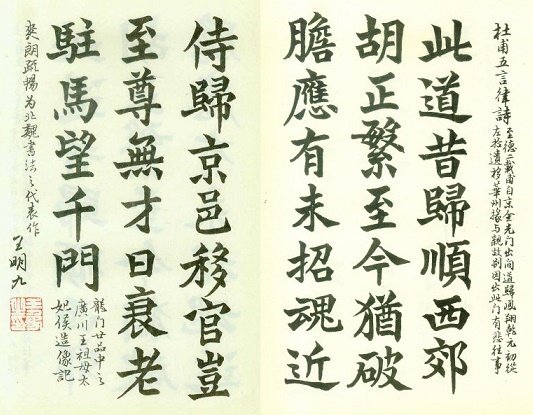 杜甫五言律詩
至德二載甫自京金光门出间道歸鳳翔乾元初從
左拾遺移華州掾与親故别因出此门有悲往事
此道昔歸順西郊
胡正繁至今猶破
膽應有未招魂近
侍歸京邑移官豈
至尊無才日衰老
駐馬望千門
龍门廿品中之
廣川王祖母太
妃侯造像記
爽朗疏揚为北魏書法之代表作
王明九